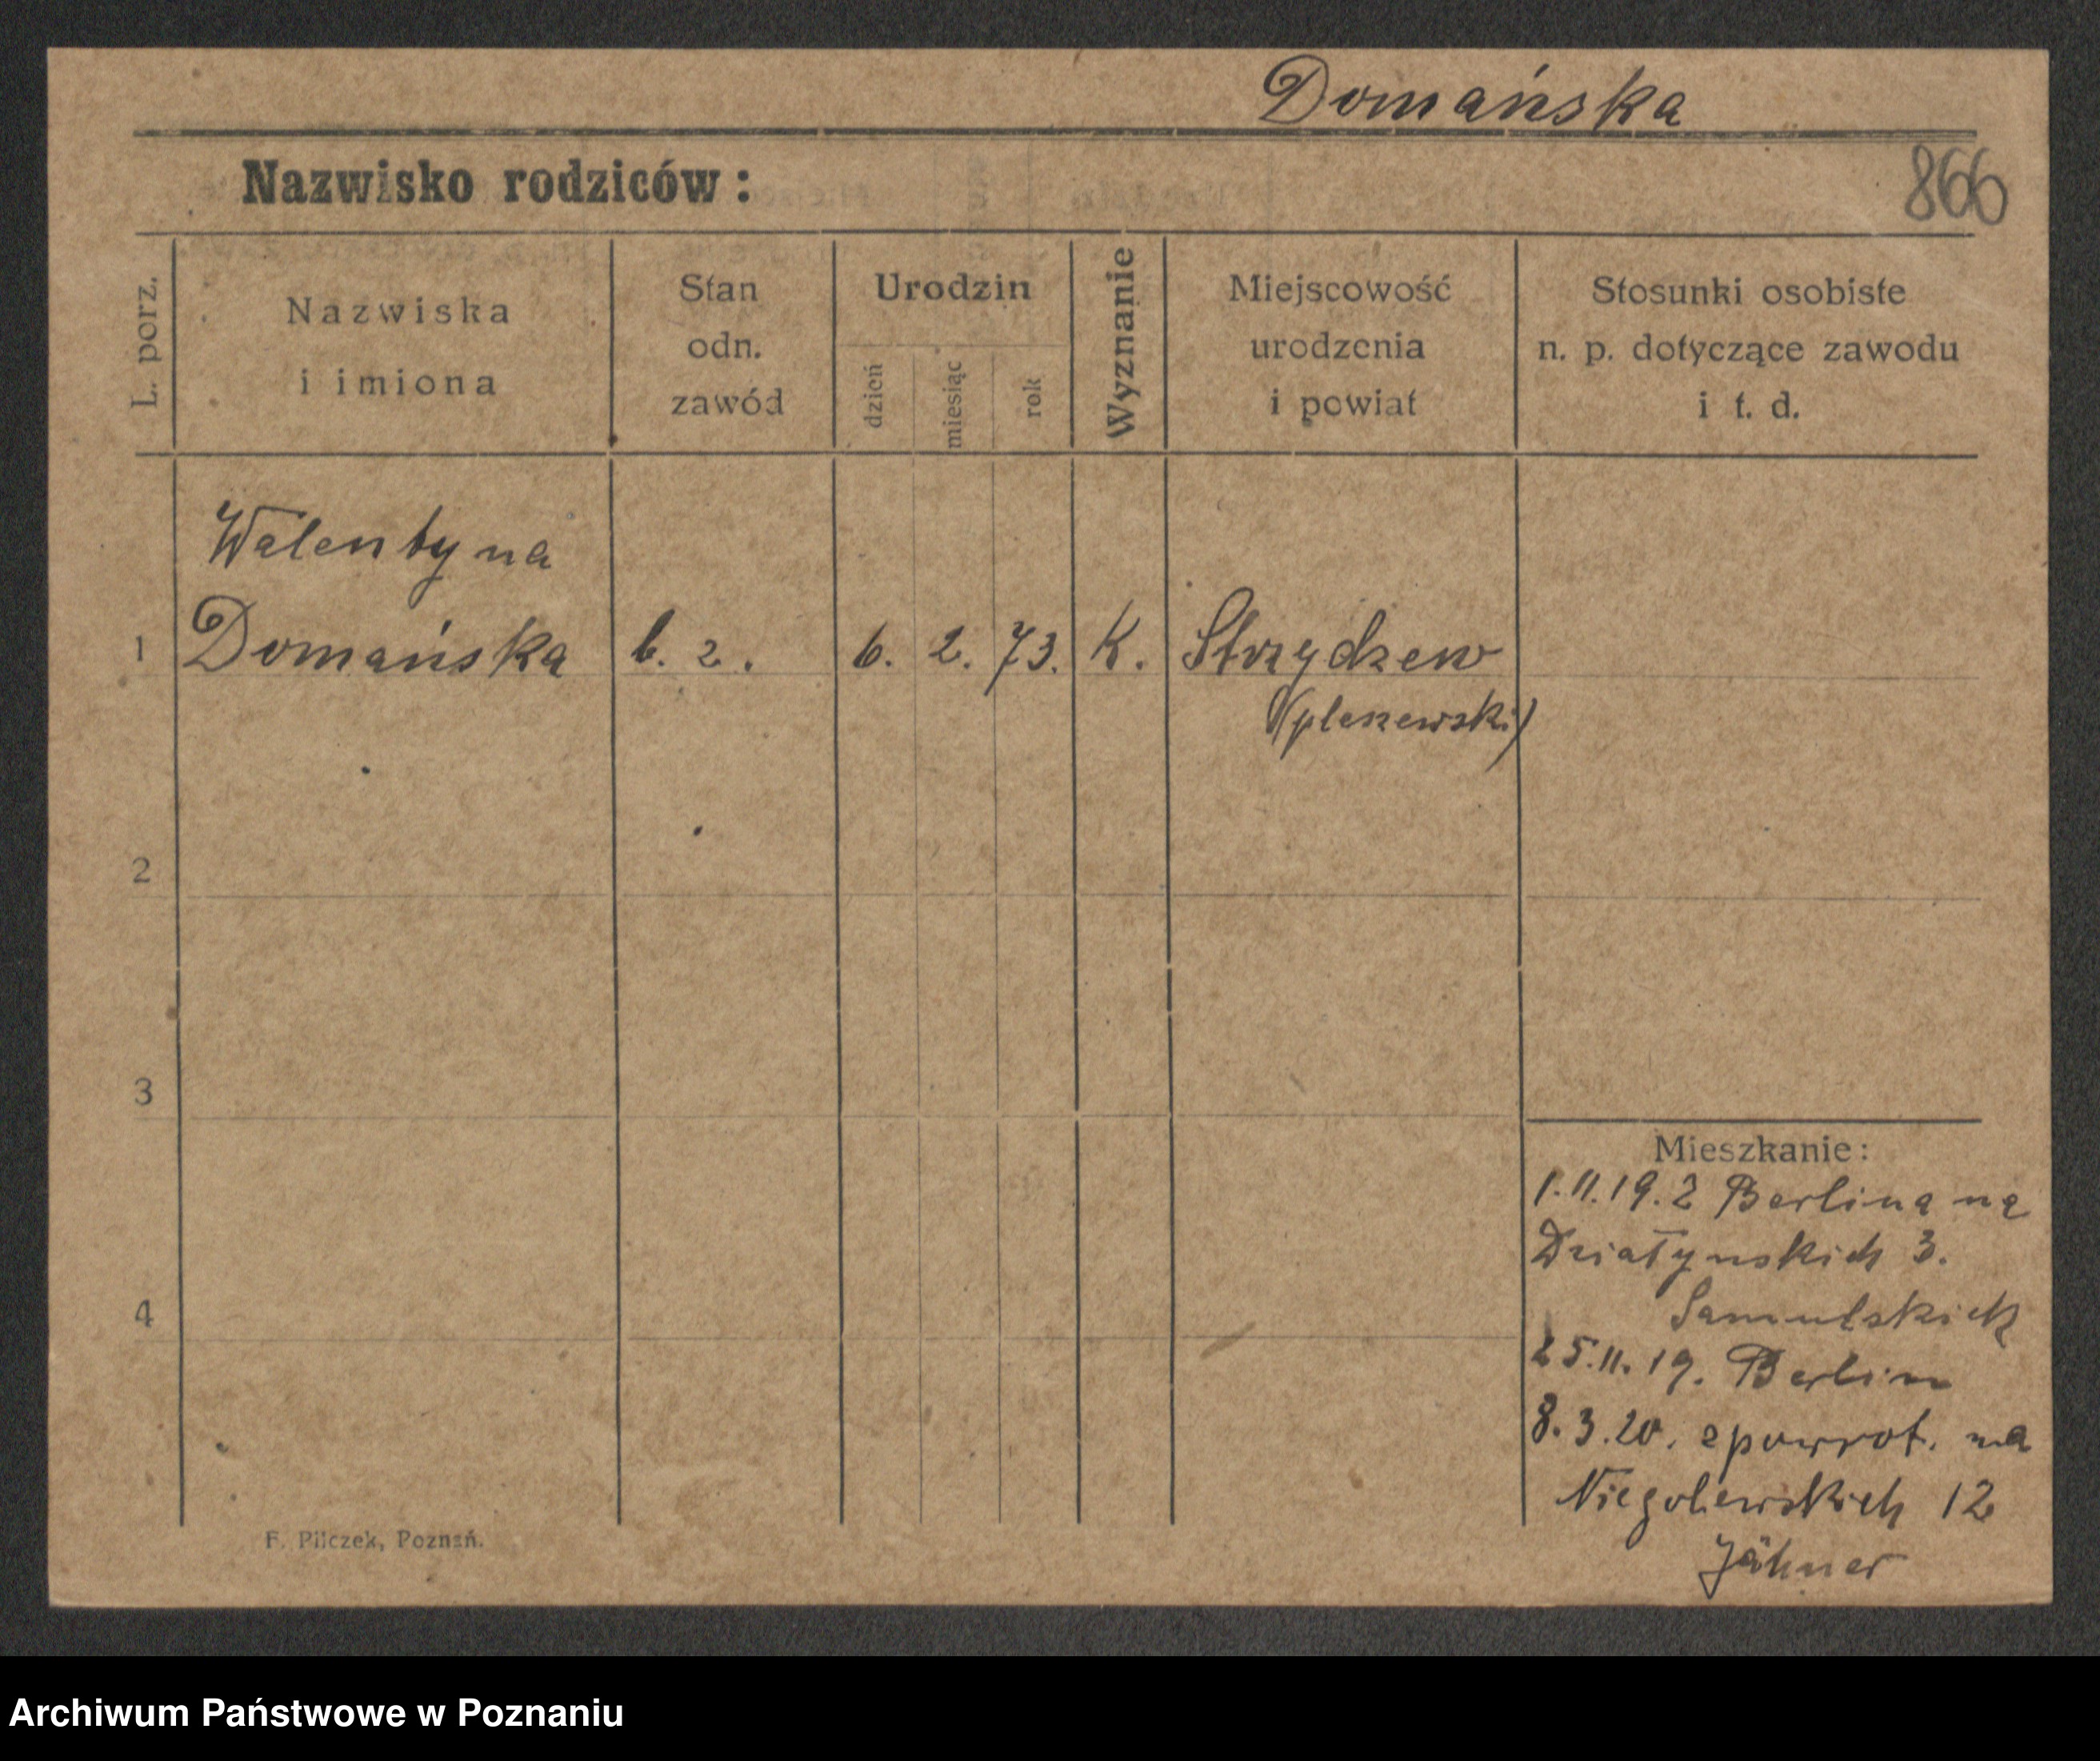 Domańska
Nazwisko rodziców:
866
L. porz.
Nazwiska
i imiona
Stan
odn.
zawód
Urodzin
dzień
miesiąc
rok
Wyznanie
Miejscowość
urodzenia
i powiat
Stosunki osobiste
n. p. dotyczące zawodu
i t. d.
Walentyna
1 Domańska b. z. 6. 2. 73. K. Strzydzew
(pleszewski)
2
3
4
Mieszkanie:
1.11.19. Z Berlina na
Działynskich 3.
Samulskich
25.11.19. Berlin
8.3.20. zpowrot. na
Niegolewskich 12
Jähner
F. Pilczek, Poznań.
Archiwum Państwowe w Poznaniu